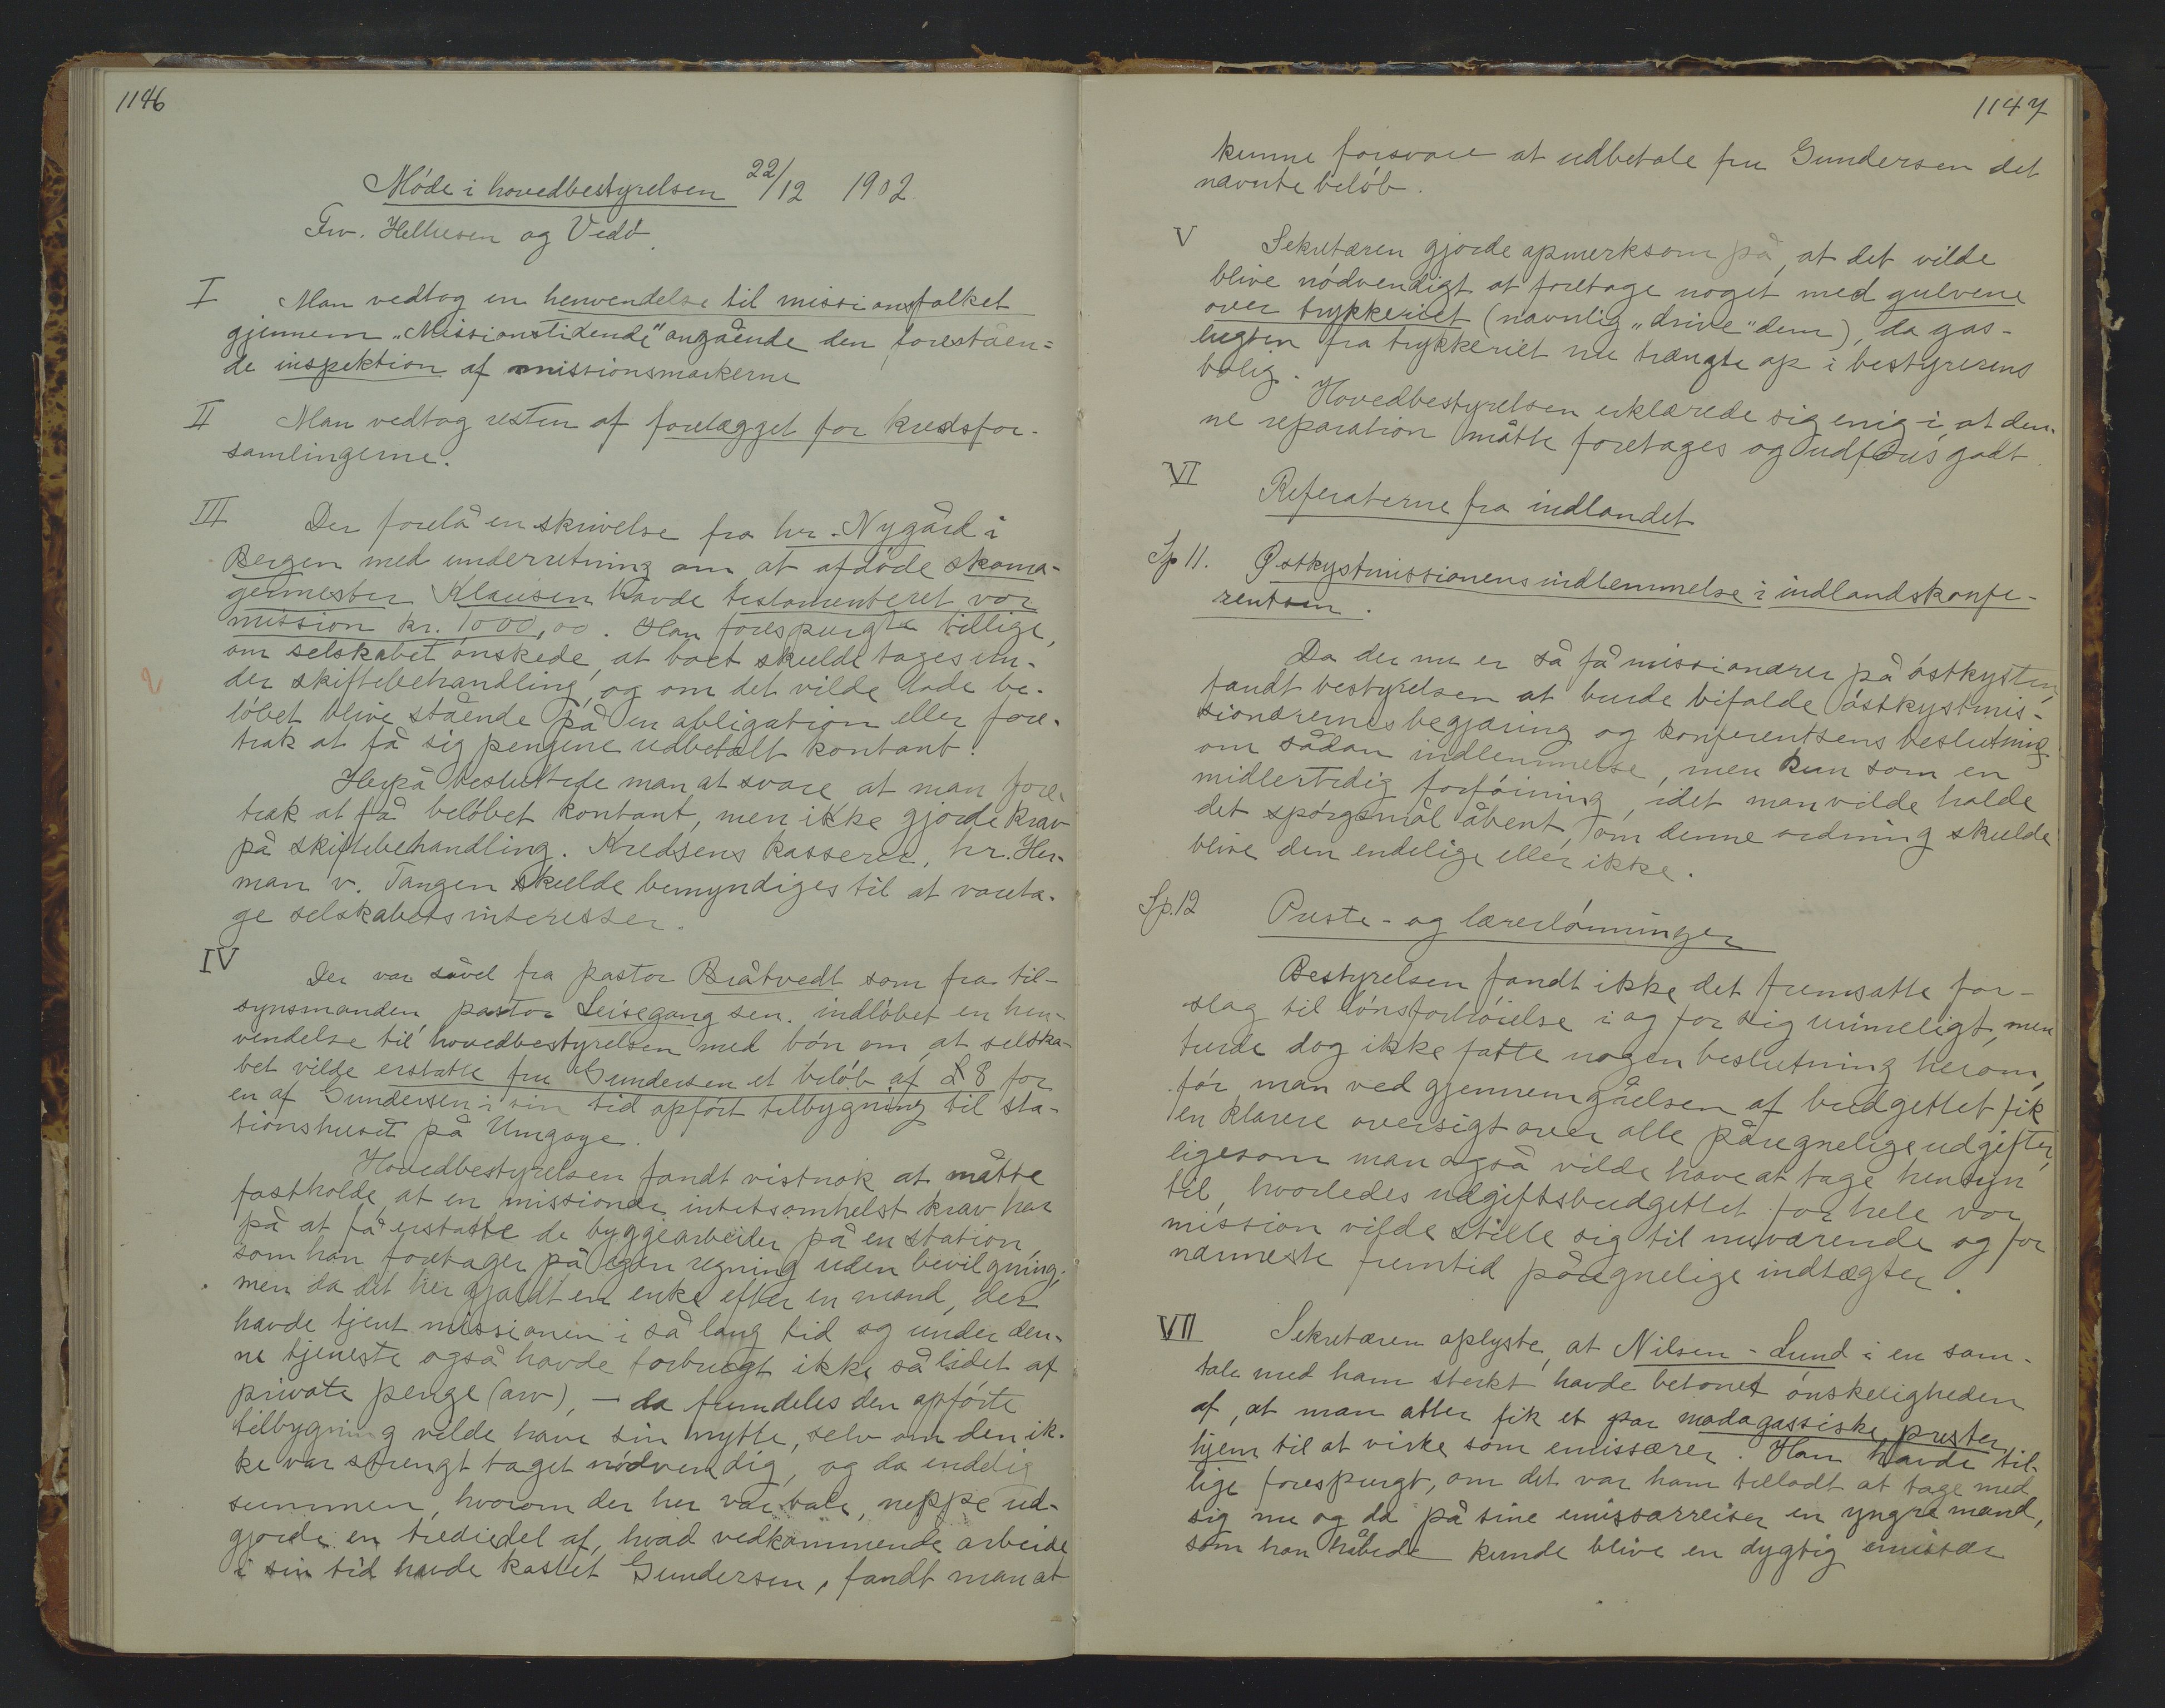 1146
Møde i hovedbestyrelsen 22/12 1902
Frv. Helliesen og Vedø.
I Man vedtog en henvendelse til missionsfolket
gjennem „Missionstidende" angående den foreståen=
de inspektion af missionsmarkerne
II Man vedtog resten af forelægget for kredsfor-
samlingerne.
III Der forelå en skrivelse fra hr. Nygård i
Bergen med underretning om at afdøde skoma-
germester Klausen havde testamenteret vor
mission kr. 1000,00. Han forespurgte tillige,
om selskabet ønskede, at boet skulde tages un-
der skiftebehandling, og om det vilde lade be-
løbet blive stående på en obligation eller fore-
trak at få sig pengene udbetalt kontant.
Herpå besluttede man at svare at man fore-
trak at få beløbet kontant, men ikke gjorde krav
på skiftebehandling. Kredsens kasserer, hr. Her-
man v. Tangen skulde bemyndiges til at vareta-
ge selskabets interesser.
IV Der var såvel fra pastor Bråtvedt som fra til-
synsmanden pastor Leisegang sen. indløbet en hen-
vendelse til hovedbestyrelsen med bøn om, at selska-
bet vilde erstatte fru Gundersen et beløb af £ 8 for
en af Gundersen i sin tid opført tilbygning til sta-
tionshuset på Umgoye.
Hovedbestyrelsen fandt vistnok at måtte
fastholde, at en missionær intetsomhelst krav har
på at få erstatte de byggearbeider på en station,
som han foretager på egen regning uden bevilgning;
men da det her gjaldt en enke efter en mand, der
havde tjent missionen i så lang tid og under den-
ne tjeneste også havde forbrugt ikke så lidet af
private penge (arv), – da fremdeles den opførte
tilbygning vilde have sin nytte, selv om den ik-
ke var strengt taget nødvendig, og da endelig
summen, hvorom der her var tale, neppe ud-
gjorde en trediedel af, hvad vedkommende arbeide
i sin tid havde kostet Gundersen, fandt man at
1147
kunne forsvare at udbetale fru Gundersen det
nævnte beløb.
V Sekretæren gjorde opmerksom på, at det vilde
blive nødvendigt at foretage noget med gulvene
over trykkeriet (navnlig „drive" dem), da gas-
lugten fra trykkeriet nu trængte op i bestyrerens
bolig.
Hovedbestyrelsen erklærede sig enig i, at den-
ne reparation måtte foretages og udføres godt.
VI Referaterne fra indlandet
Sp 11. Østkystmissionens indlemmelse i indlandskonfe-
rentsen.
Da der nu er så få missionærer på østkysten,
fandt bestyrelsen at burde bifalde østkystmis-
sionærernes begjæring og konferentsens beslutning
om sådan indlemmelse, men kun som en
midlertidig forføining, idet man vilde holde
det spørgsmål åbent, om denne ordning skulde
blive den endelige eller ikke.
Sp. 12 Preste- og lærerlønninger
Bestyrelsen fandt ikke det fremsatte for-
slag til lønsforhøielse i og for sig urimeligt, men
turde dog ikke fatte nogen beslutning herom,
før man ved gjennemgåelsen af budgettet fik
en klarere oversigt over alle påregnelige udgifter,
ligesom man også vilde have at tage hensyn
til, hvorledes udgiftsbudgettet for hele vor
mission vilde stille sig til nuværende og for
nærmeste fremtid påregnelige indtægter.
VII Sekretæren oplyste, at Nilsen-Lund i en sam-
tale med ham sterkt havde betonet ønskeligheden
af, at man atter fik et par madagassiske prester
hjem til at virke som emissærer. Han havde til-
lige forespurgt, om det var ham tilladt at tage med
sig nu og da på sine emissærreiser en yngre mand,
som han håbede kunde blive en dygtig emissær